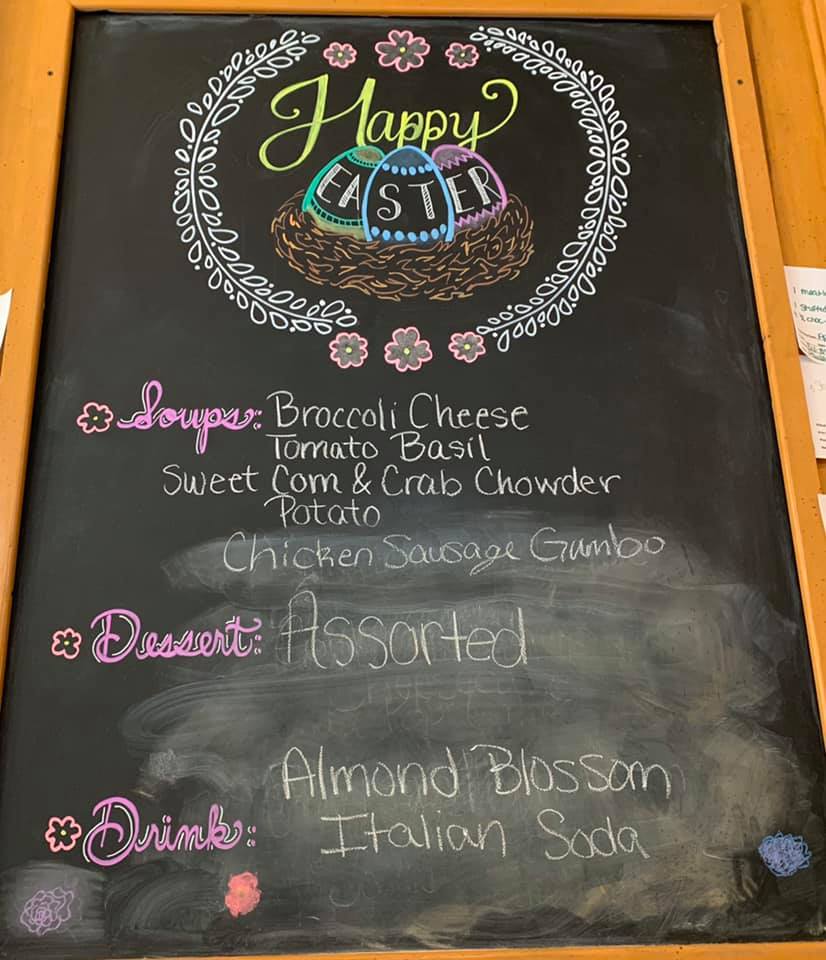 Happy
EASTER
Soups: Broccoli Cheese
Tomato Basil
Sweet Corn & Crab Chowder
Potato
Chicken Sausage Gumbo
Dessert: Assorted
Almond Blossom
Drink: Italian Soda